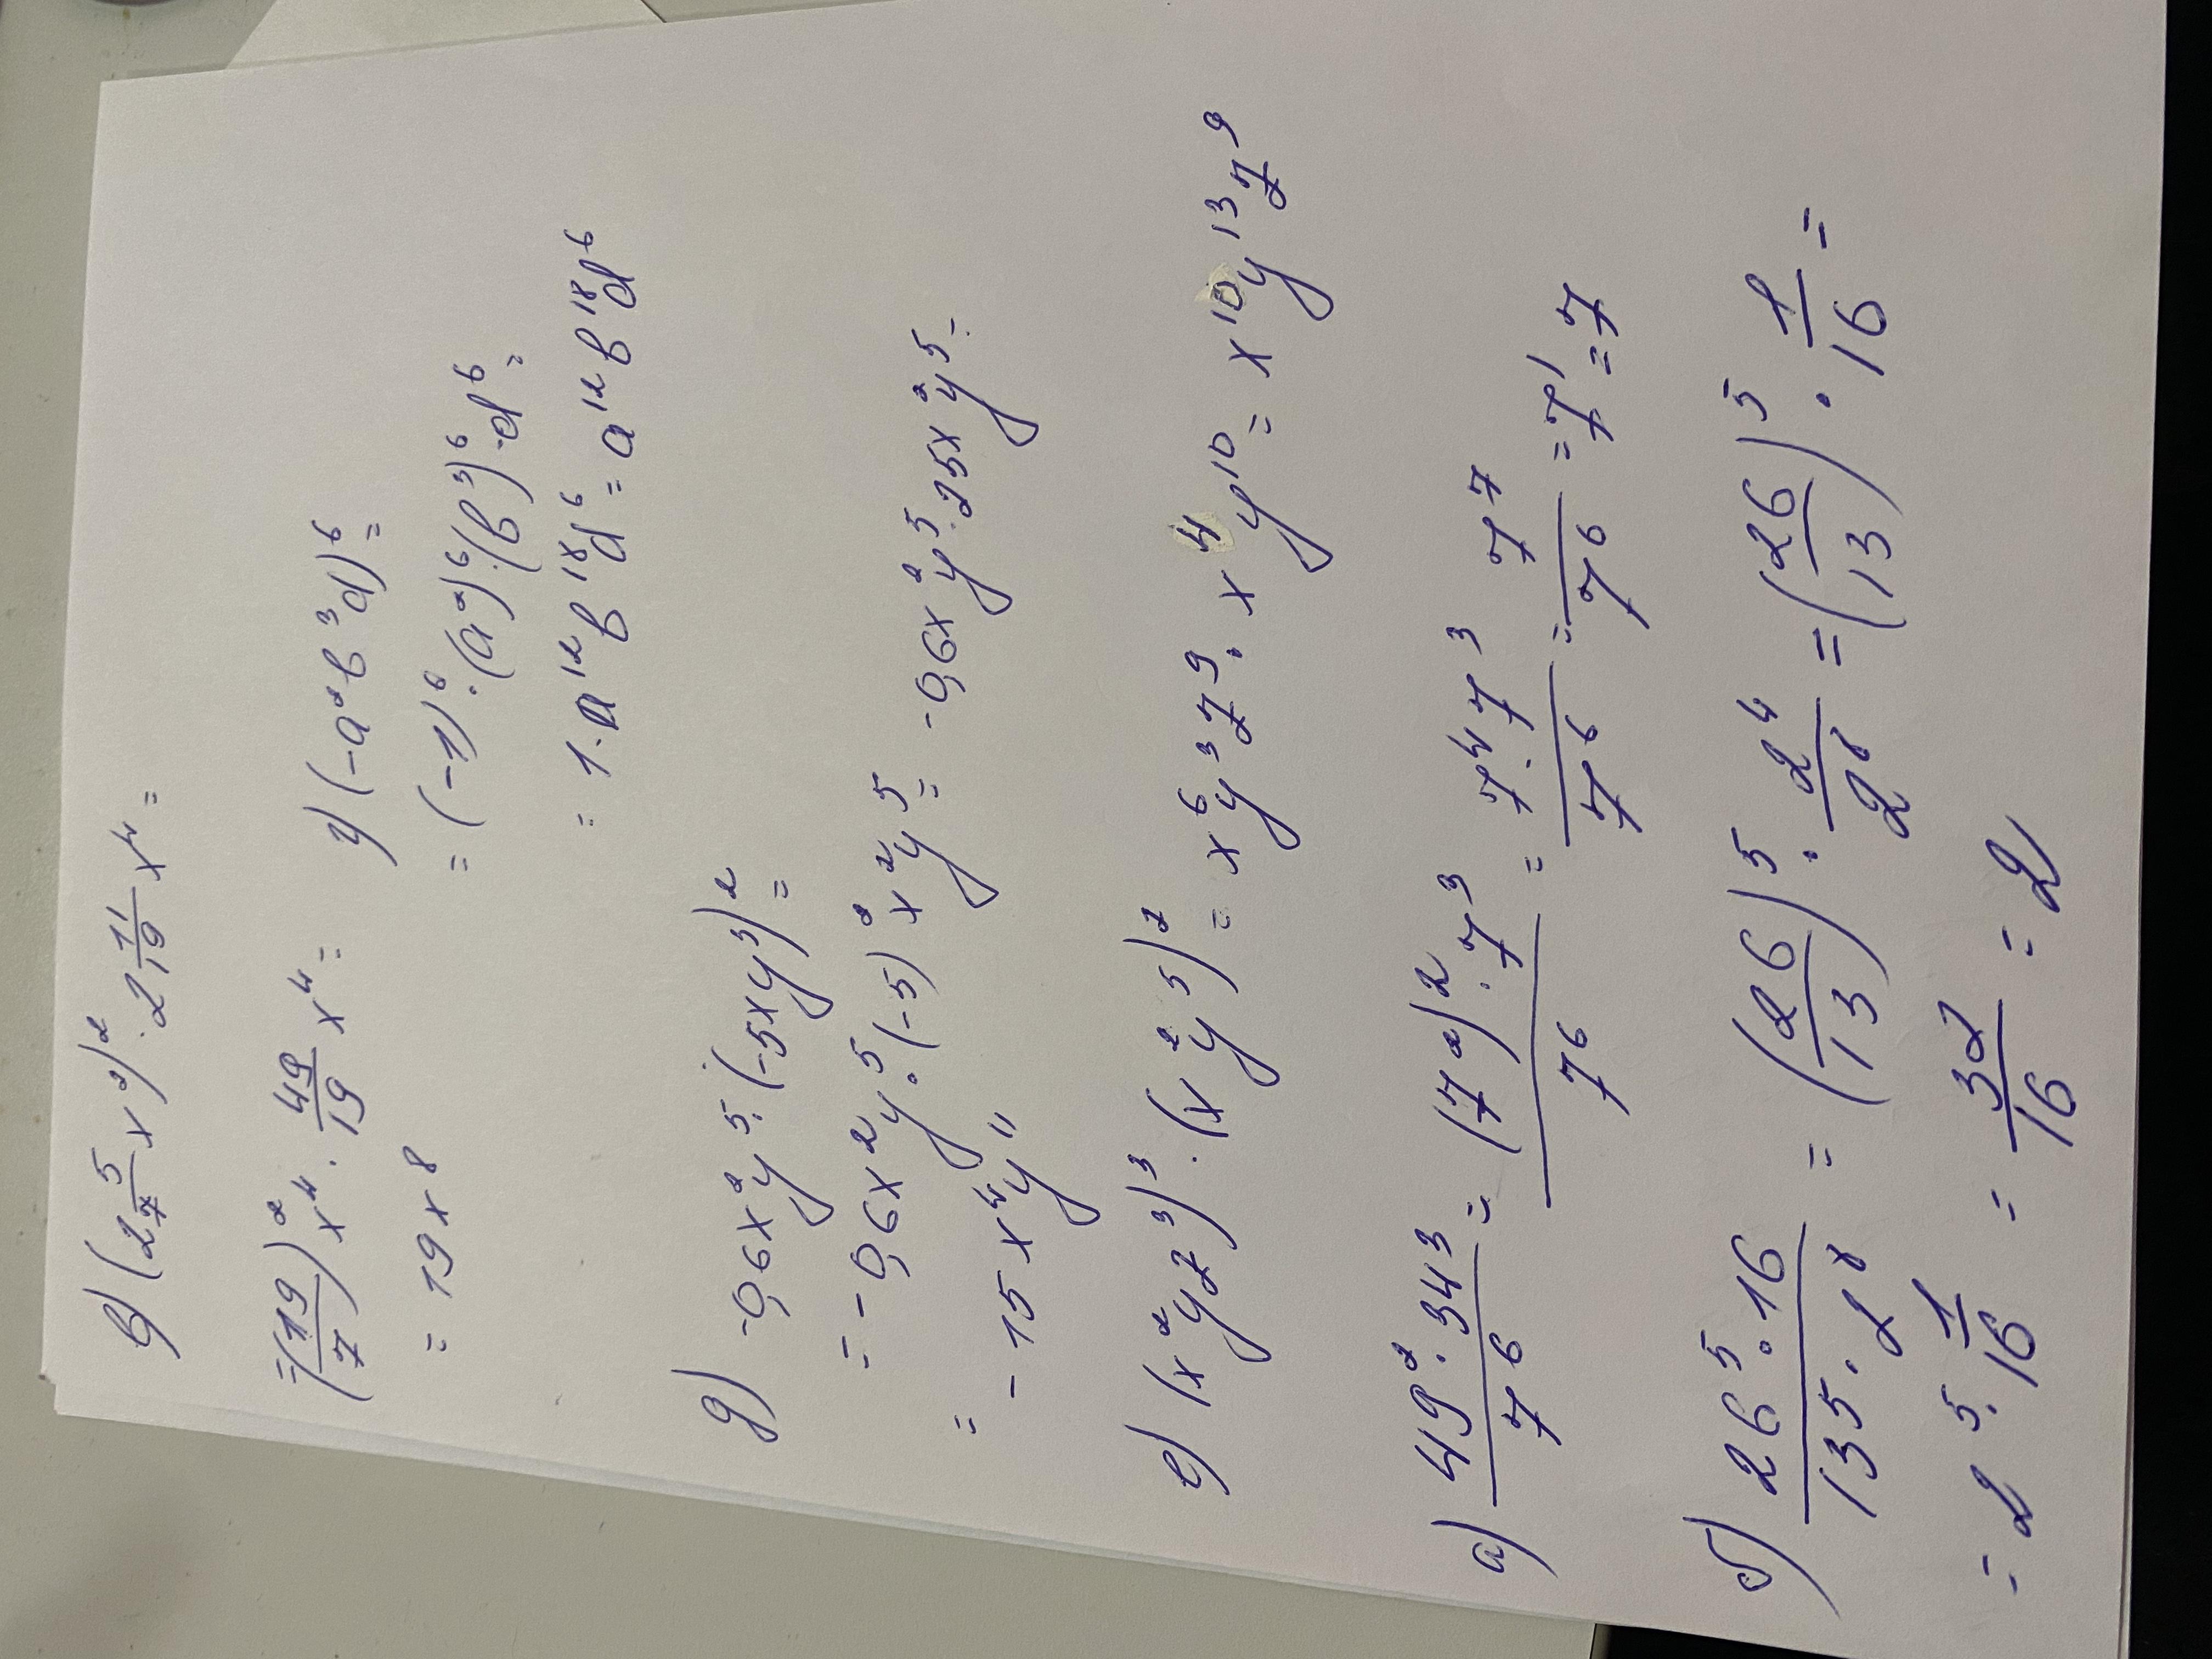 в) (2 5/7 x²)² · 2 11/19 x⁴ =
= (19/7)² x⁴ · 49/19 x⁴ =
= 19x⁸
г) (-a²b³d)⁶ =
= (-1)⁶ · (a²)⁶ · (b³)⁶ · d⁶ =
= 1 · a¹²b¹⁸d⁶ = a¹²b¹⁸d⁶
д) -0,6x²y⁵ · (-5xy³)² =
= -0,6x²y⁵ · (-5)² x²y⁵ = -0,6x²y⁵ · 25x²y⁵ =
= -15x⁴y¹¹
е) (x²yz³)³ · (x²y⁵)² = x⁶y³z⁹ · x⁴y¹⁰ = x¹⁰y¹³z⁹
а) 49² · 343 / 7⁶ = (7²)² · 7³ / 7⁶ = 7⁴ · 7³ / 7⁶ = 7⁷ / 7⁶ = 7¹ = 7
б) 26⁵ · 16 / 13⁵ · 2⁸ = (26/13)⁵ · 2⁴/2⁸ = (26/13)⁵ · 1/16 =
= 2⁵ · 1/16 = 32/16 = 2